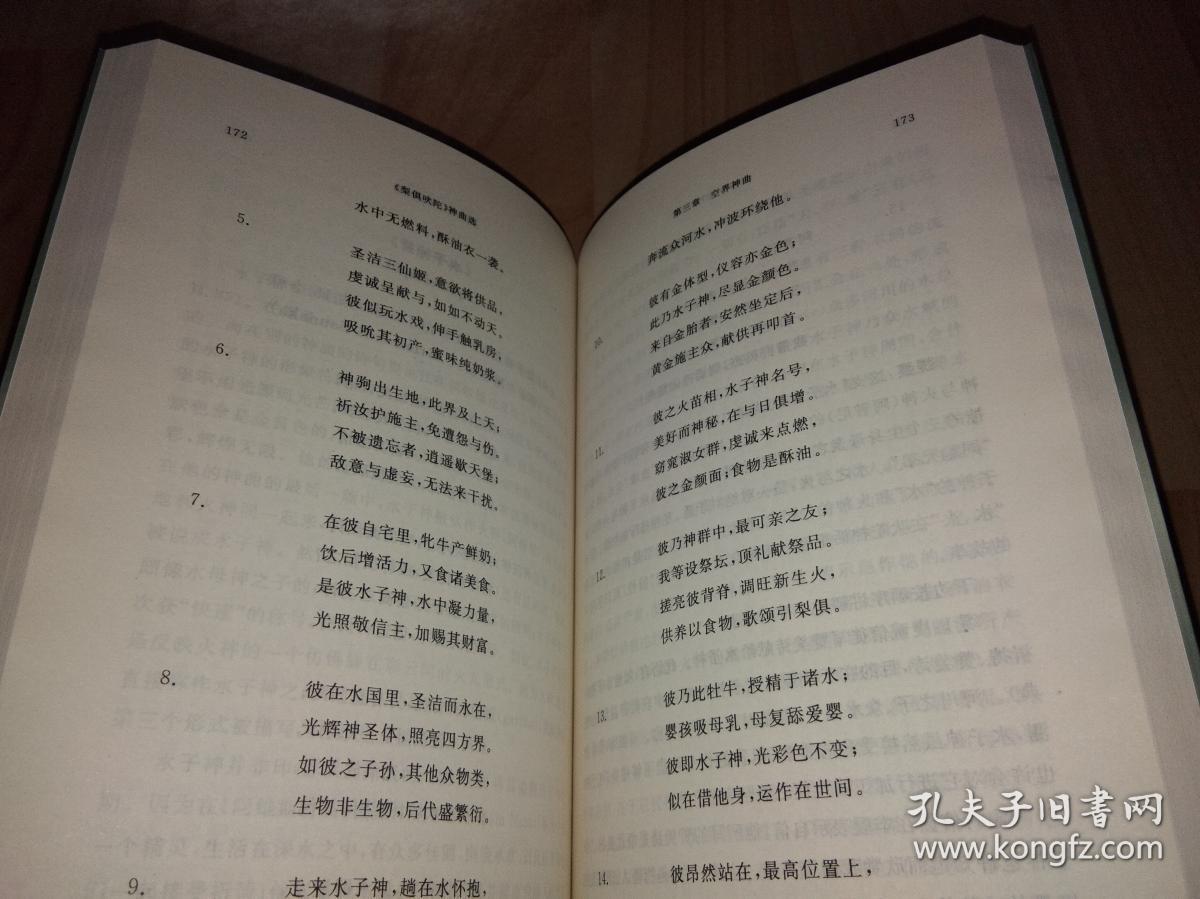 172
《梨俱吠陀》神曲选
水中无燃料，酥油衣一袭。
5.
圣洁三仙姬，意欲将供品，
虔诚呈献与，如如不动天。
彼似玩水戏，伸手触乳房，
吸吮其初产，蜜味纯奶浆。
6.
神驹出生地，此界及上天；
祈汝护施主，免遭怨与伤。
不被遗忘者，逍遥歇天堡；
敌意与虚妄，无法来干扰。
7.
在彼自宅里，牝牛产鲜奶；
饮后增活力，又食诸美食。
是彼水子神，水中凝力量，
光照敬信主，加赐其财富。
8.
彼在水国里，圣洁而永在，
光辉神圣体，照亮四方界。
如彼之子孙，其他众物类，
生物非生物，后代盛繁衍。
9.
走来水子神，趟在水怀抱，
173
第三章 空界神曲
奔流众河水，冲波环绕他。
10.
彼有金体型，仪容亦金色；
此乃水子神，尽显金颜色。
来自金胎者，安然坐定后，
黄金施主众，献供再叩首。
11.
彼之火苗相，水子神名号，
美好而神秘，在与日俱增。
窈窕淑女群，虔诚来点燃，
彼之金颜面；食物是酥油。
12.
彼乃神群中，最可亲之友；
我等设祭坛，顶礼献祭品。
搓亮彼背脊，调旺新生火，
供养以食物，歌颂引梨俱。
13.
彼乃此牡牛，授精于诸水；
婴孩吸母乳，母复舔爱婴。
彼即水子神，光彩色不变；
似在借他身，运作在世间。
14.
彼昂然站在，最高位置上，
孔夫子旧书网
www.kongfz.com